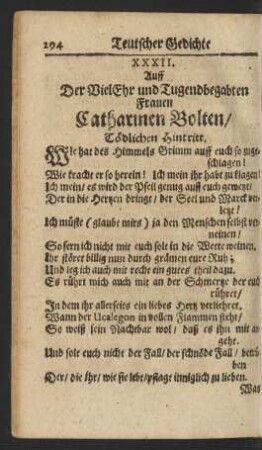 294 Teutscher Gedichte
XXXII.
Auff
Der VielEhr und Tugendbegabten
Frauen
Catharinen Bolten/
Tödlichen Hintritt.
Wie hat des Himmels Grimm auff euch so zuge-
schlagen!
Wie kracht er so herein! Ich mein ihr habt zu klagen!
Ich mein/ es wird der Pfeil genug auff euch gewetzt/
Der in die Hertzen dringt/ der Seel und Marck ver-
letzt!
Ich müste (glaubt mirs) ja den Menschen selbst ver-
neinen/
So fern ich nicht mit euch solt in die Wette weinen.
Ihr störet billig nun durch grämen eure Ruh;
Und leg ich auch mit recht ein gutes theil dazu.
Es rührt mich auch mit an der Schmertz der euch
rühret/
In dem ihr allerseits ein liebes Hertz verliehret.
Wann der Ucalegon in vollen Flammen steht/
So weiß sein Nachtbar wol/ daß es ihn mit an-
geht.
Und solt euch nicht der Fall/ der schnöde Fall/ betrü-
ben
Der/ die Ihr/ wie sie lebt/ pflagt inniglich zu lieben.
Was